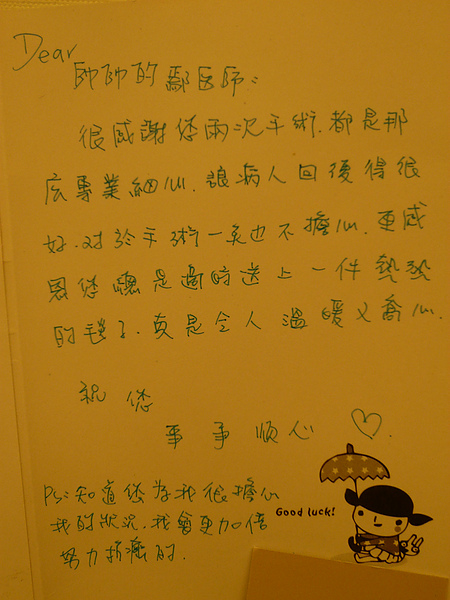 Dear
帥帥的鄢医師:
很感謝您兩次手術.都是那
広專業細心.讓病人回復得很
好.对於手術一矣也不擔心.更感
恩您總是適時送上一件熱熱
的毯子.真是令人溫暖又窩心.
祝 您
事事順心 ♡.
Good luck!
Ps:知道您為我很擔心
我的狀況.我會更加倍
努力抗癌的.